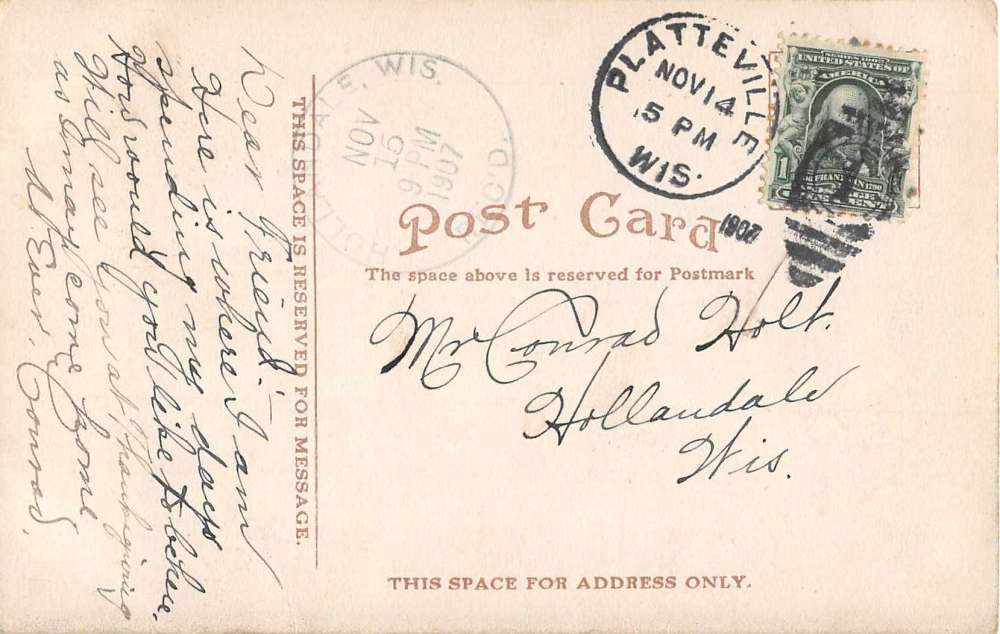 Dear Friend.
Here is where I am
spending my days
How would you like to be here.
Will see you at Thanksgiving
as I may come home
As Ever, Conrad.
THIS SPACE IS RESERVED FOR MESSAGE.
HOLLANDALE, WIS.
NOV
15
9 PM
1907
REC'D.
PLATTEVILLE
NOV 14
5 PM
WIS.
1907
SERIES 1902
UNITED STATES OF
AMERICA
1
FRANKLIN 1790
Post Card
The space above is reserved for Postmark
Mr Conrad Holt.
Hollandale
Wis.
THIS SPACE FOR ADDRESS ONLY.